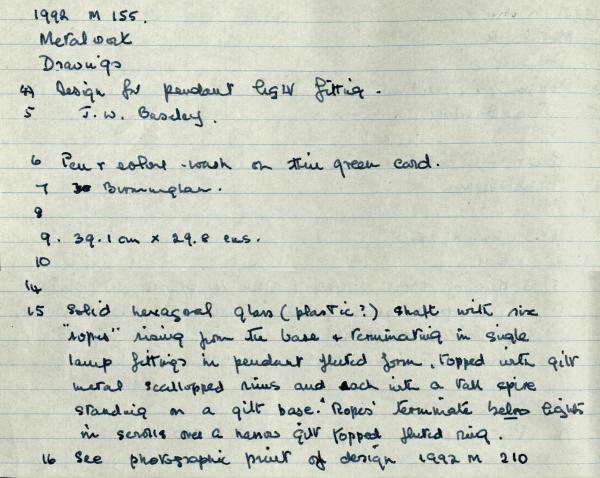 1992 M 155.
Metalwork
Drawings
4 Design for pendant light fitting.
5 J.W. Baseley.
6 Pen & colour-wash on thin green card.
7 Birmingham.
8
9. 39.1 cm x 29.8 cms.
10
14
15 Solid hexagonal glass (plastic?) shaft with six
"ropes" rising from the base & terminating in single
lamp fittings in pendant fluted form, topped with gilt
metal scallopped rims and each with a tall spire
standing on a gilt base. 'Ropes' terminate below lights
in scrolls over a narrow gilt topped fluted ring.
16 See photographic print of design 1992 M 210